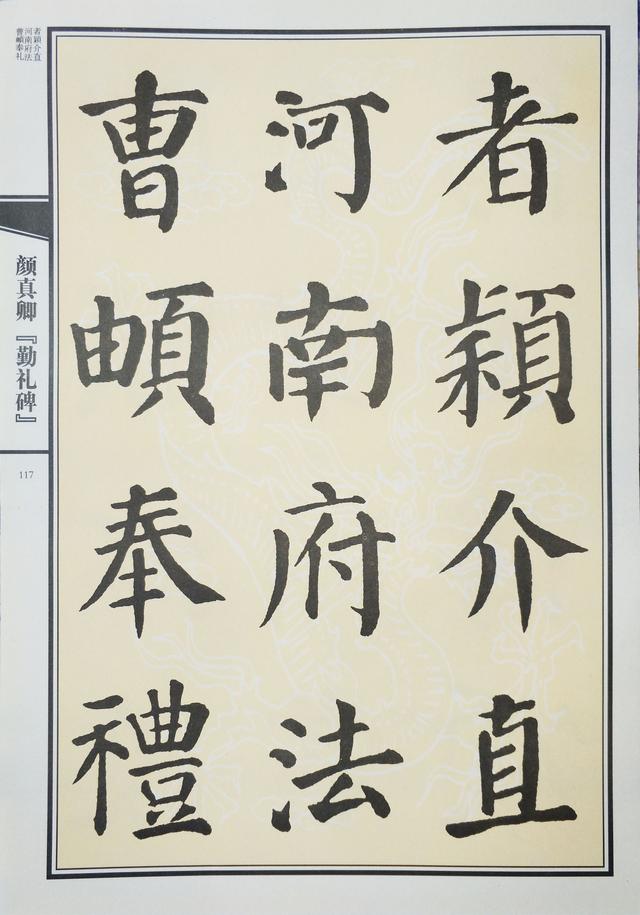 者穎介直
河南府法
曹頔奉禮
者穎介直
河南府法
曹頔奉礼
颜真卿『勤礼碑』
117